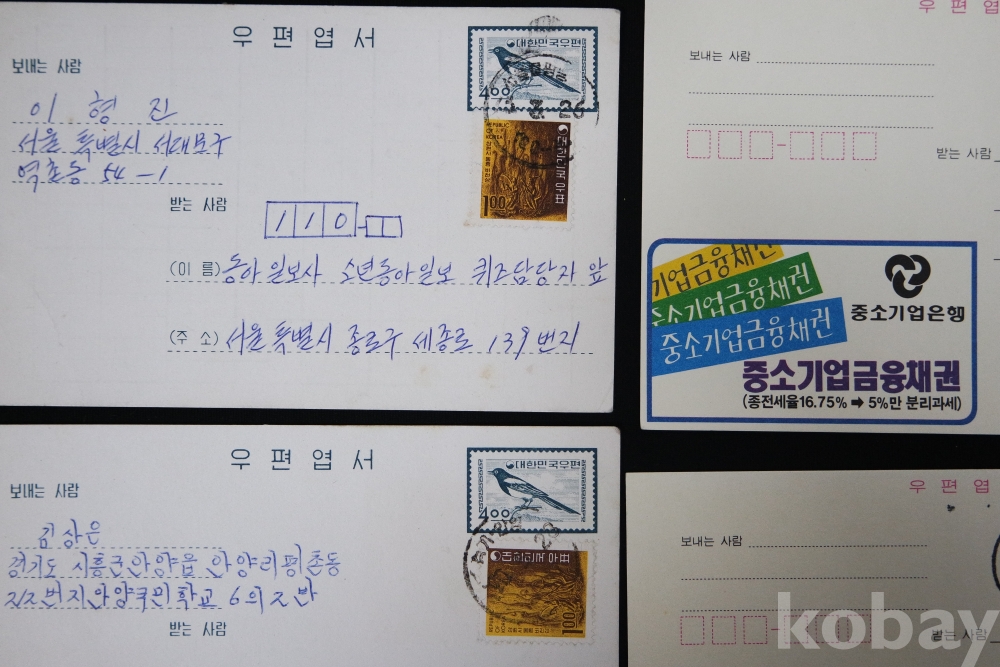 우편엽서
보내는 사람
이 형 진
서울 특별시 서대문구
역촌동 54-1
받는 사람
110-
(이 름) 동아일보사 소년동아일보 퀴즈담당자 앞
(주 소) 서울 특별시 종로구 세종로 139번지
대한민국우편
400
REPUBLIC OF KOREA
대한민국우표
100
우편엽서
보내는 사람
김상은
경기도 시흥군안양읍 안양리평촌동
받는 사람
대한민국우편
400
대한민국우표
100
우편엽
보내는 사람
받는 사람
기업금융채권
중소기업금융채권
중소기업금융채권
중소기업은행
중소기업금융채권
(종전세율16.75% ➡ 5%만 분리과세)
우편엽
보내는 사람
받는 사람
kobay